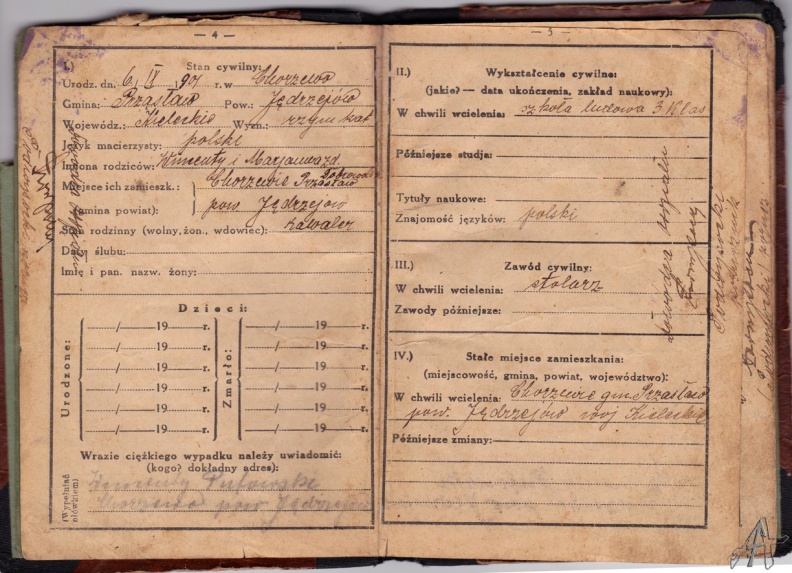 — 4 —
I.) Stan cywilny:
Urodz. dn. 6 IV 1907 r. w Chorzewa
Gmina: Prząsław Pow.: Jędrzejów
Wojewódz.: Kieleckie Wyzn.: rzym kat
Język macierzysty: polski
Imiona rodziców: Klimenty i Marjanna zd.
Dobrowol
Miejsce ich zamieszk.: Chorzewie Prząsław
(gmina powiat): pow. Jędrzejów
Stan rodzinny (wolny, żon., wdowiec): kawaler
Data ślubu:
Imię i pan. nazw. żony:
Dzieci:
Urodzone:
Zmarło:
/ 19 r. / 19 r.
/ 19 r. / 19 r.
/ 19 r. / 19 r.
/ 19 r. / 19 r.
/ 19 r. / 19 r.
/ 19 r. / 19 r.
Wrazie ciężkiego wypadku należy uwiadomić:
(kogo? dokładny adres):
(Wypełniać ołówkiem)
Klimenty
Chorzewa pow Jędrzejów
— 5 —
II.) Wykształcenie cywilne:
(jakie? — data ukończenia, zakład naukowy):
W chwili wcielenia: szkoła ludowa 3 klas
Późniejsze studja:
Tytuły naukowe:
Znajomość języków: polski
III.) Zawód cywilny:
W chwili wcielenia: stolarz
Zawody późniejsze:
IV.) Stałe miejsce zamieszkania:
(miejscowość, gmina, powiat, województwo):
W chwili wcielenia: Chorzewie gm. Prząsław
pow. Jędrzejów woj Kieleckie
Późniejsze zmiany:
szpitalu